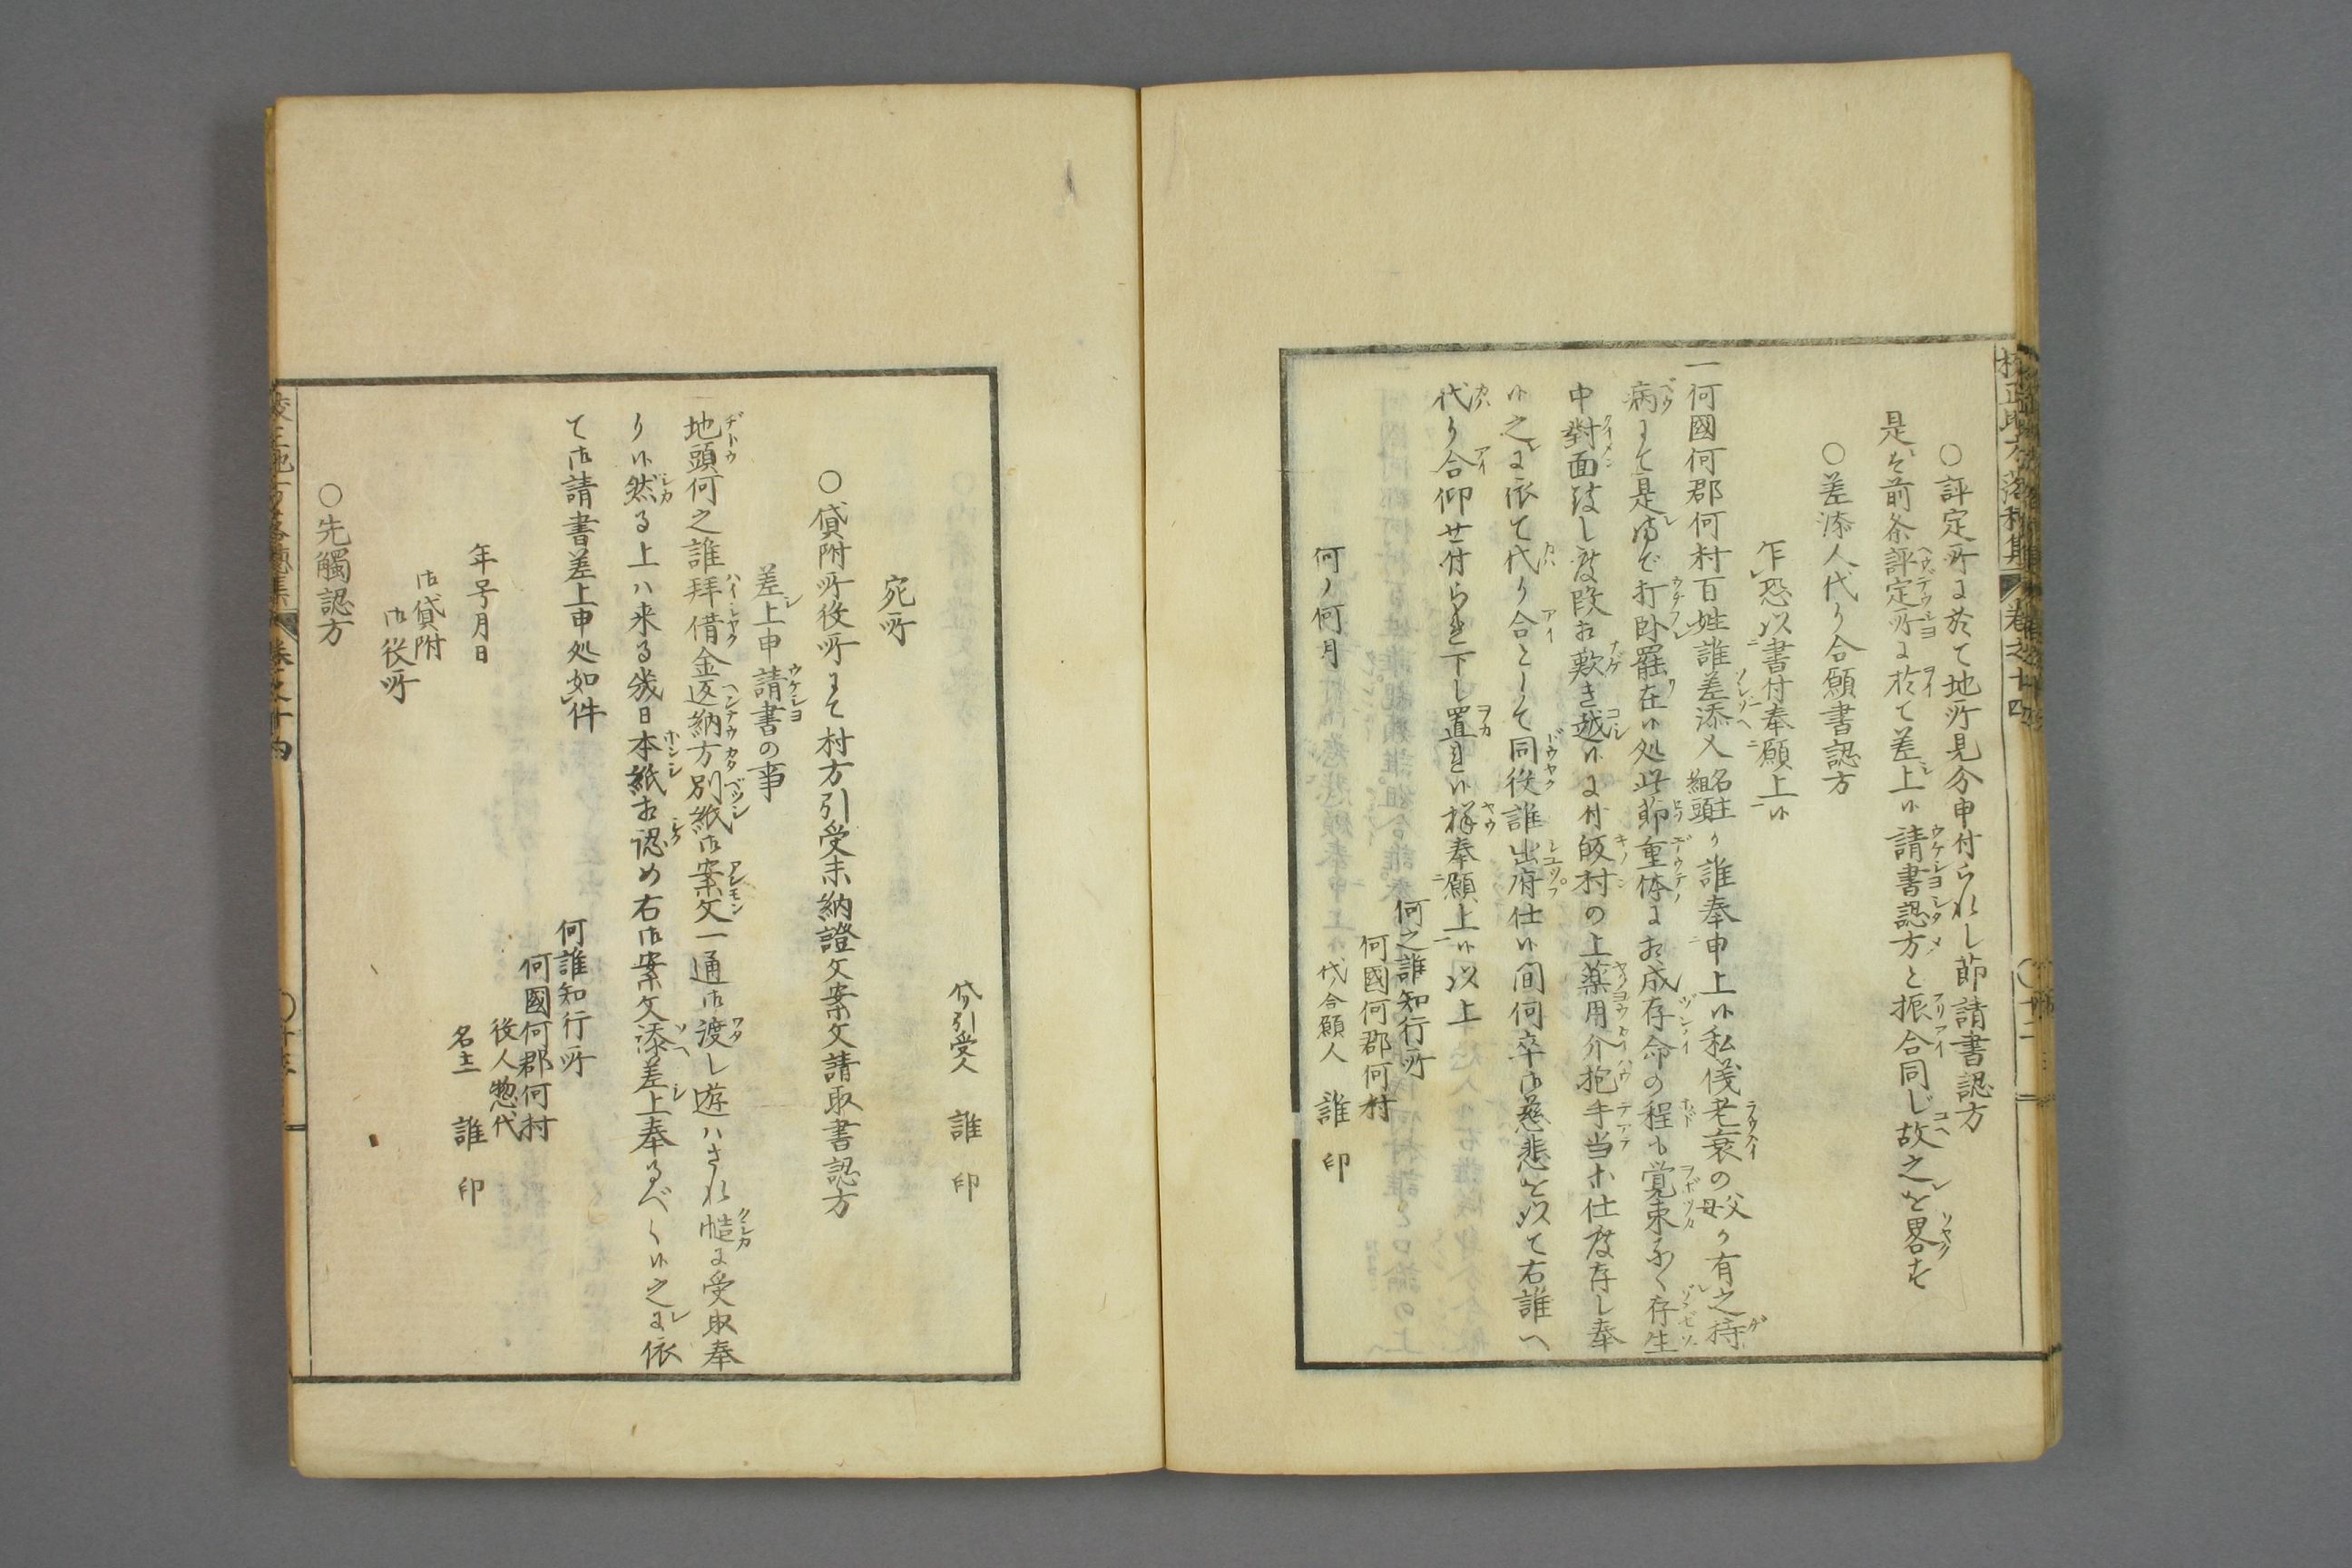 ○評定所に於て地所見分申付られし節請書認方
是ハ前条評定所に於て差上候請書認方と振合同じ故之を畧す
○差添人代り合願書認方
乍恐以書付奉願上候
一何國何郡何村百姓誰差添人名主組頭誰奉申上候私儀老衰の父母有之持
病にて是迄打臥罷在候処此節重体にお成存命の程も覚束なく存生
中對面致し度段お歎き越候に付皈村の上薬用介抱手当ホ仕度存し奉
候之に依て代り合として同役誰出府仕候間何卒御慈悲を以て右誰へ
代り合仰せ付られ下し置れ候様奉願上候以上
何之誰知行所
何國何郡何村
何ノ何月 代合願人 誰 印
引受人 誰 印
宛所
○貸附所役所にて村方引受未納證文案文請取書認方
差上申請書の事
地頭何之誰拜借金返納方別紙御案文一通御渡し遊ハされ慥に受取奉
り候然る上ハ来る幾日本紙お認め右御案文添差上奉るべく候之に依
て御請書差上申処如件
何誰知行所
何國何郡何村
役人惣代
年号月日 名主 誰 印
御貸附
御役所
○先觸認方